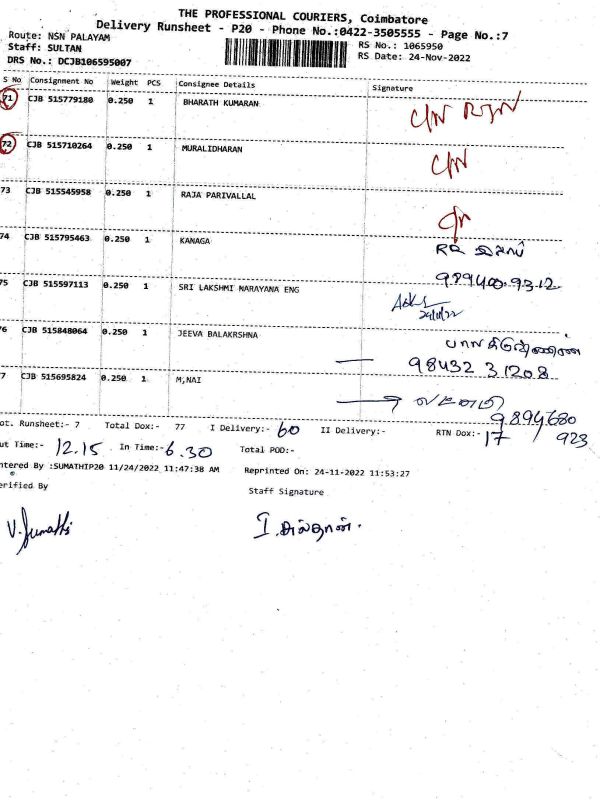 THE PROFESSIONAL COURIERS, Coimbatore
Delivery Runsheet - P20 - Phone No.:0422-3505555 - Page No.:7
Route: NSN PALAYAM
RS No.: 1065950
Staff: SULTAN
RS Date: 24-Nov-2022
DRS No.: DCJB106595007
S No Consignment No Weight PCS Consignee Details Signature
71 CJB 515779180 0.250 1 BHARATH KUMARAN C/N RTN
72 CJB 515710264 0.250 1 MURALIDHARAN C/N
73 CJB 515545958 0.250 1 RAJA PARIVALLAL
74 CJB 515795463 0.250 1 KANAGA
989400 9312
75 CJB 515597113 0.250 1 SRI LAKSHMI NARAYANA ENG
24/11/22
76 CJB 515848064 0.250 1 JEEVA BALAKRSHNA
98432 31208
77 CJB 515695824 0.250 1 M,NAI
9894680
923
ot. Runsheet:- 7 Total Dox:- 77 I Delivery:- 60 II Delivery:- RTN Dox:- 17
ut Time:- 12.15 In Time:- 6.30 Total POD:-
ntered By :SUMATHIP20 11/24/2022 11:47:38 AM Reprinted On: 24-11-2022 11:53:27
erified By Staff Signature
V. Sumathi I. சுல்தான்.